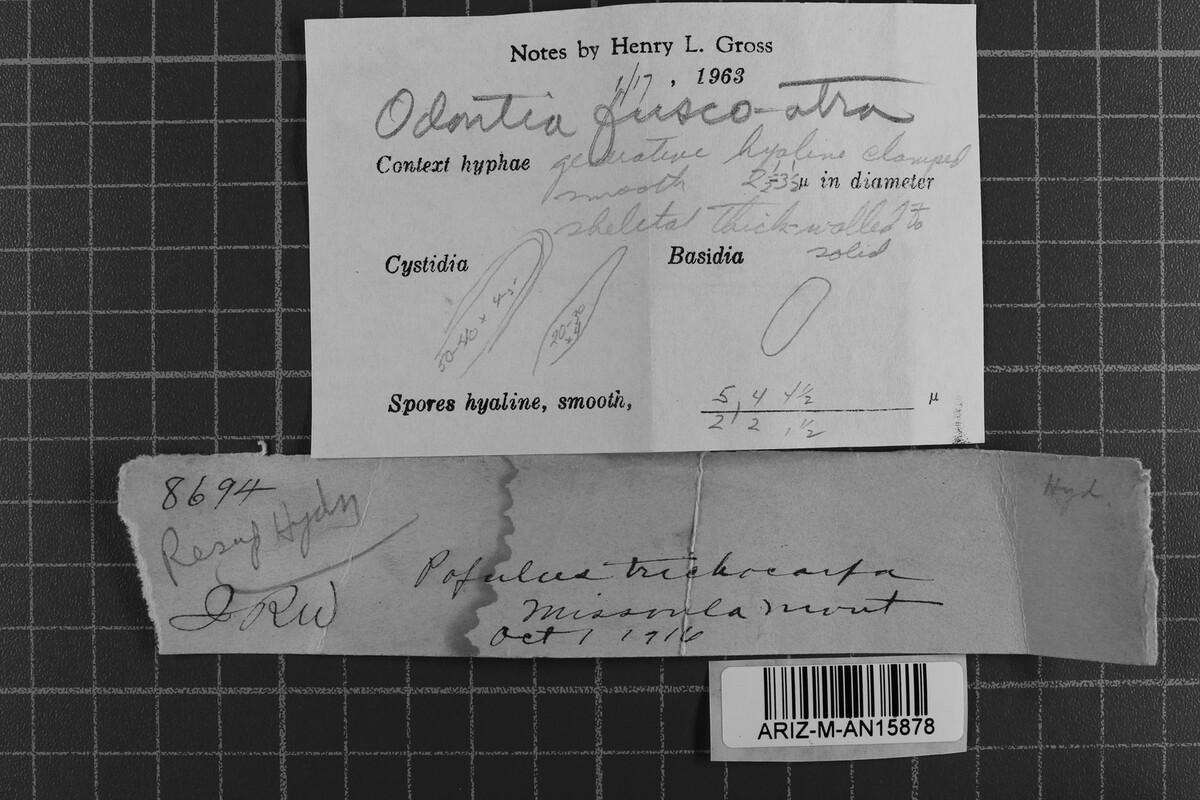 Notes by Henry L. Gross
1/17, 1963
Odontia fusco-atra
Context hyphae generative hyaline clamped
smooth 2½-3½ µ in diameter
skeletal thick-walled to
solid
Cystidia Basidia
50-80 x 4-5
20-30
x 4
Spores hyaline, smooth, 5/2, 4/2 4½/1½ µ
8694
Resup Hydn
Hyd.
JRW
Populus trichocarpa
Missoula Mont
Oct 1 1916
ARIZ-M-AN15878